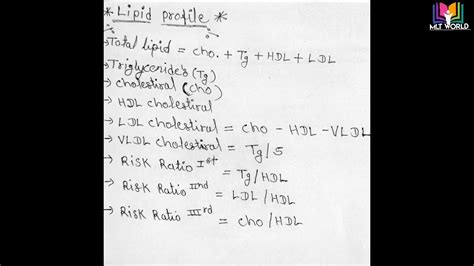 * Lipid profile *
→ Total lipid = cho. + Tg + HDL + LDL
→ Triglycerides (Tg)
→ cholestiral (cho)
→ HDL cholestiral
→ LDL cholestiral = cho - HDL - VLDL
→ VLDL cholestiral = Tg/5
→ Risk Ratio Ist = Tg/HDL
→ Risk Ratio IInd = LDL/HDL
→ Risk Ratio IIIrd = cho/HDL
MLT WORLD